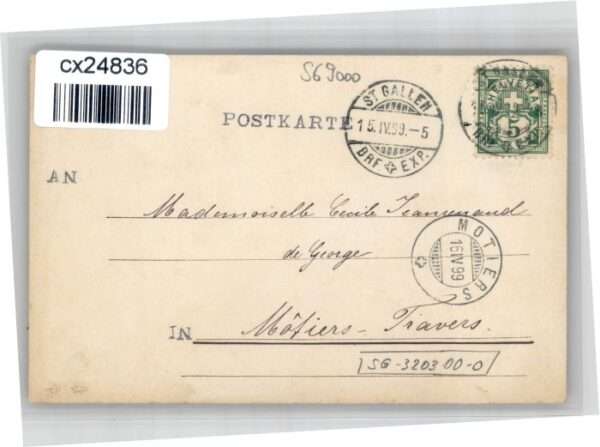 cx24836
S69000
ST GALLEN
15.IV.99.-5
BRF EXP.
POSTKARTE
5
AN
Mademoiselle Cécile Jeanrenaud
de George
MOTIERS
16 IV 99
IN
Môtiers-Travers.
SG-3203.00-0